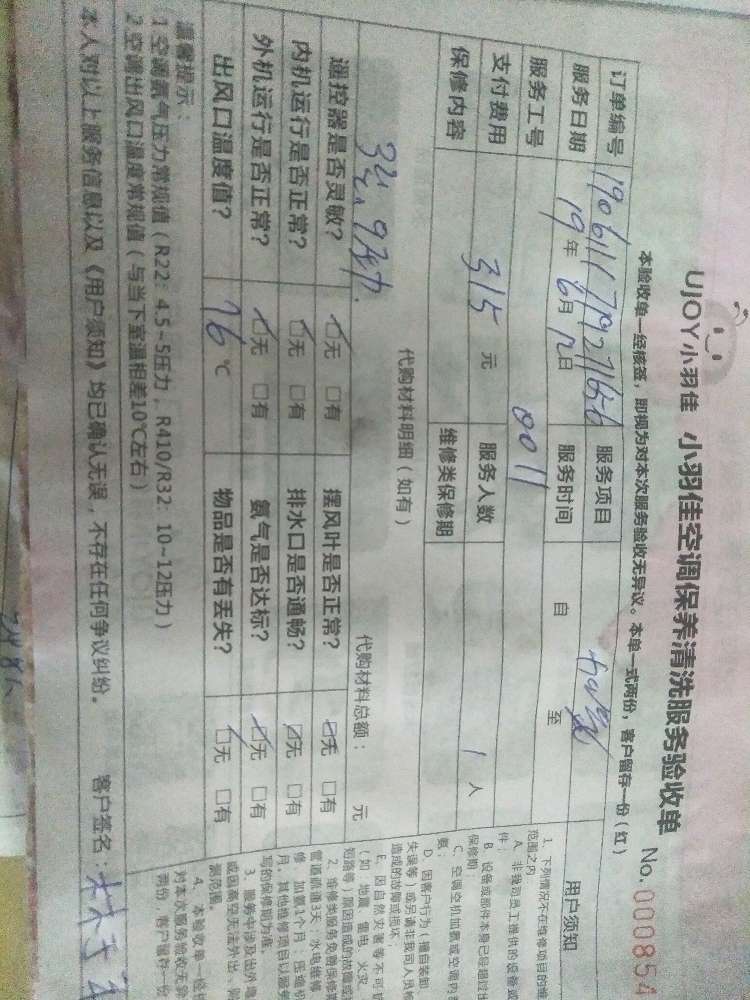 UJOY小羽佳 小羽佳空调保养清洗服务验收单 No.000854
本验收单一经核签，即视为对本次服务验收无异议。本单一式两份，客户留存一份（红）
订单编号 服务项目
服务日期 19年6月12日 服务时间 自 至
服务工号 0011
支付费用 315元 服务人数 1人
保修内容 维修类保修期
代购材料明细（如有） 代购材料总额： 元
遥控器是否灵敏？ ☑无 □有 摆风叶是否正常？ ☑无 □有
内机运行是否正常？ ☑无 □有 排水口是否通畅？ ☑无 □有
外机运行是否正常？ ☑无 □有 氨气是否达标？ ☑无 □有
出风口温度值？ 16℃ 物品是否有丢失？ ☑无 □有
温馨提示：
1 空调氨气压力常规值（R22：4.5~5压力，R410/R32：10~12压力）
2 空调出风口温度常规值（与当下室温相差10℃左右）
本人对以上服务信息以及《用户须知》均已确认无误，不存在任何争议纠纷。 客户签名：
用户须知
1、下列情况不在维修项目的维
范围之内
A、非我司员工提供的设备或
件；
B、设备或部件本身已经超过出
保修期；
C、空调空机加氨或空调内
氨；
D、因客户行为（擅自装卸
失误等）或另请非我司人员
造成的故障或损坏；
E、因自然灾害等不可
（如：地震、雷电、火灾
短路等）原因造成的故障或
2、维修类服务免费保修期
管道疏通3天；水电维修
修，加氨1个月，压缩机
月。其他维修项目以服务
写的保修期为准。
3、服务中涉及出外
或因高空无法外出，
源范围。
4、本验收单一经
对本次服务验收无异
两份，客户留存一份